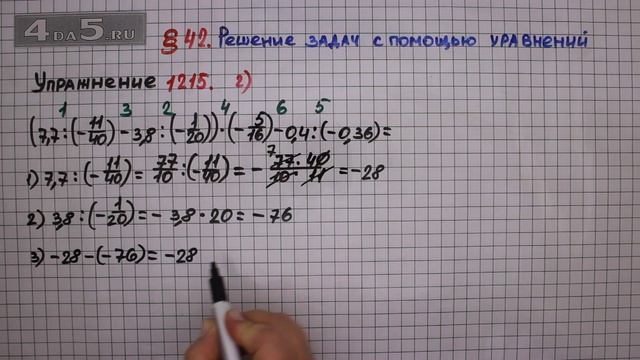 4DA5.RU
§ 42. Решение задач с помощью уравнений
Упражнение 1215. г)
1 3 2 4 6 5
(7,7:(-11/40)-3,8:(-1/20))·(-5/16)-0,4:(-0,36)=
1) 7,7:(-11/40)=77/10:(-11/40)=-77·40/10·11=-28
7
2) 3,8:(-1/20)=-3,8·20=-76
3) -28-(-76)=-28